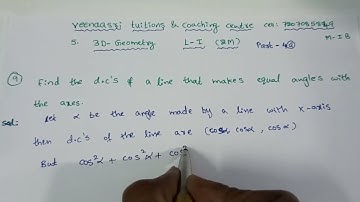 veenadari tuitions & coaching centre cell: 7207055549
5. 3D-Geometry L-I (2M) Part-42 M-IB
9 Find the d.c's of a line that makes equal angles with
the axes.
Sol: let α be the angle made by a line with x-axis
then d.c's of the line are (cosα, cosα, cosα)
But cos²α + cos²α + cos²